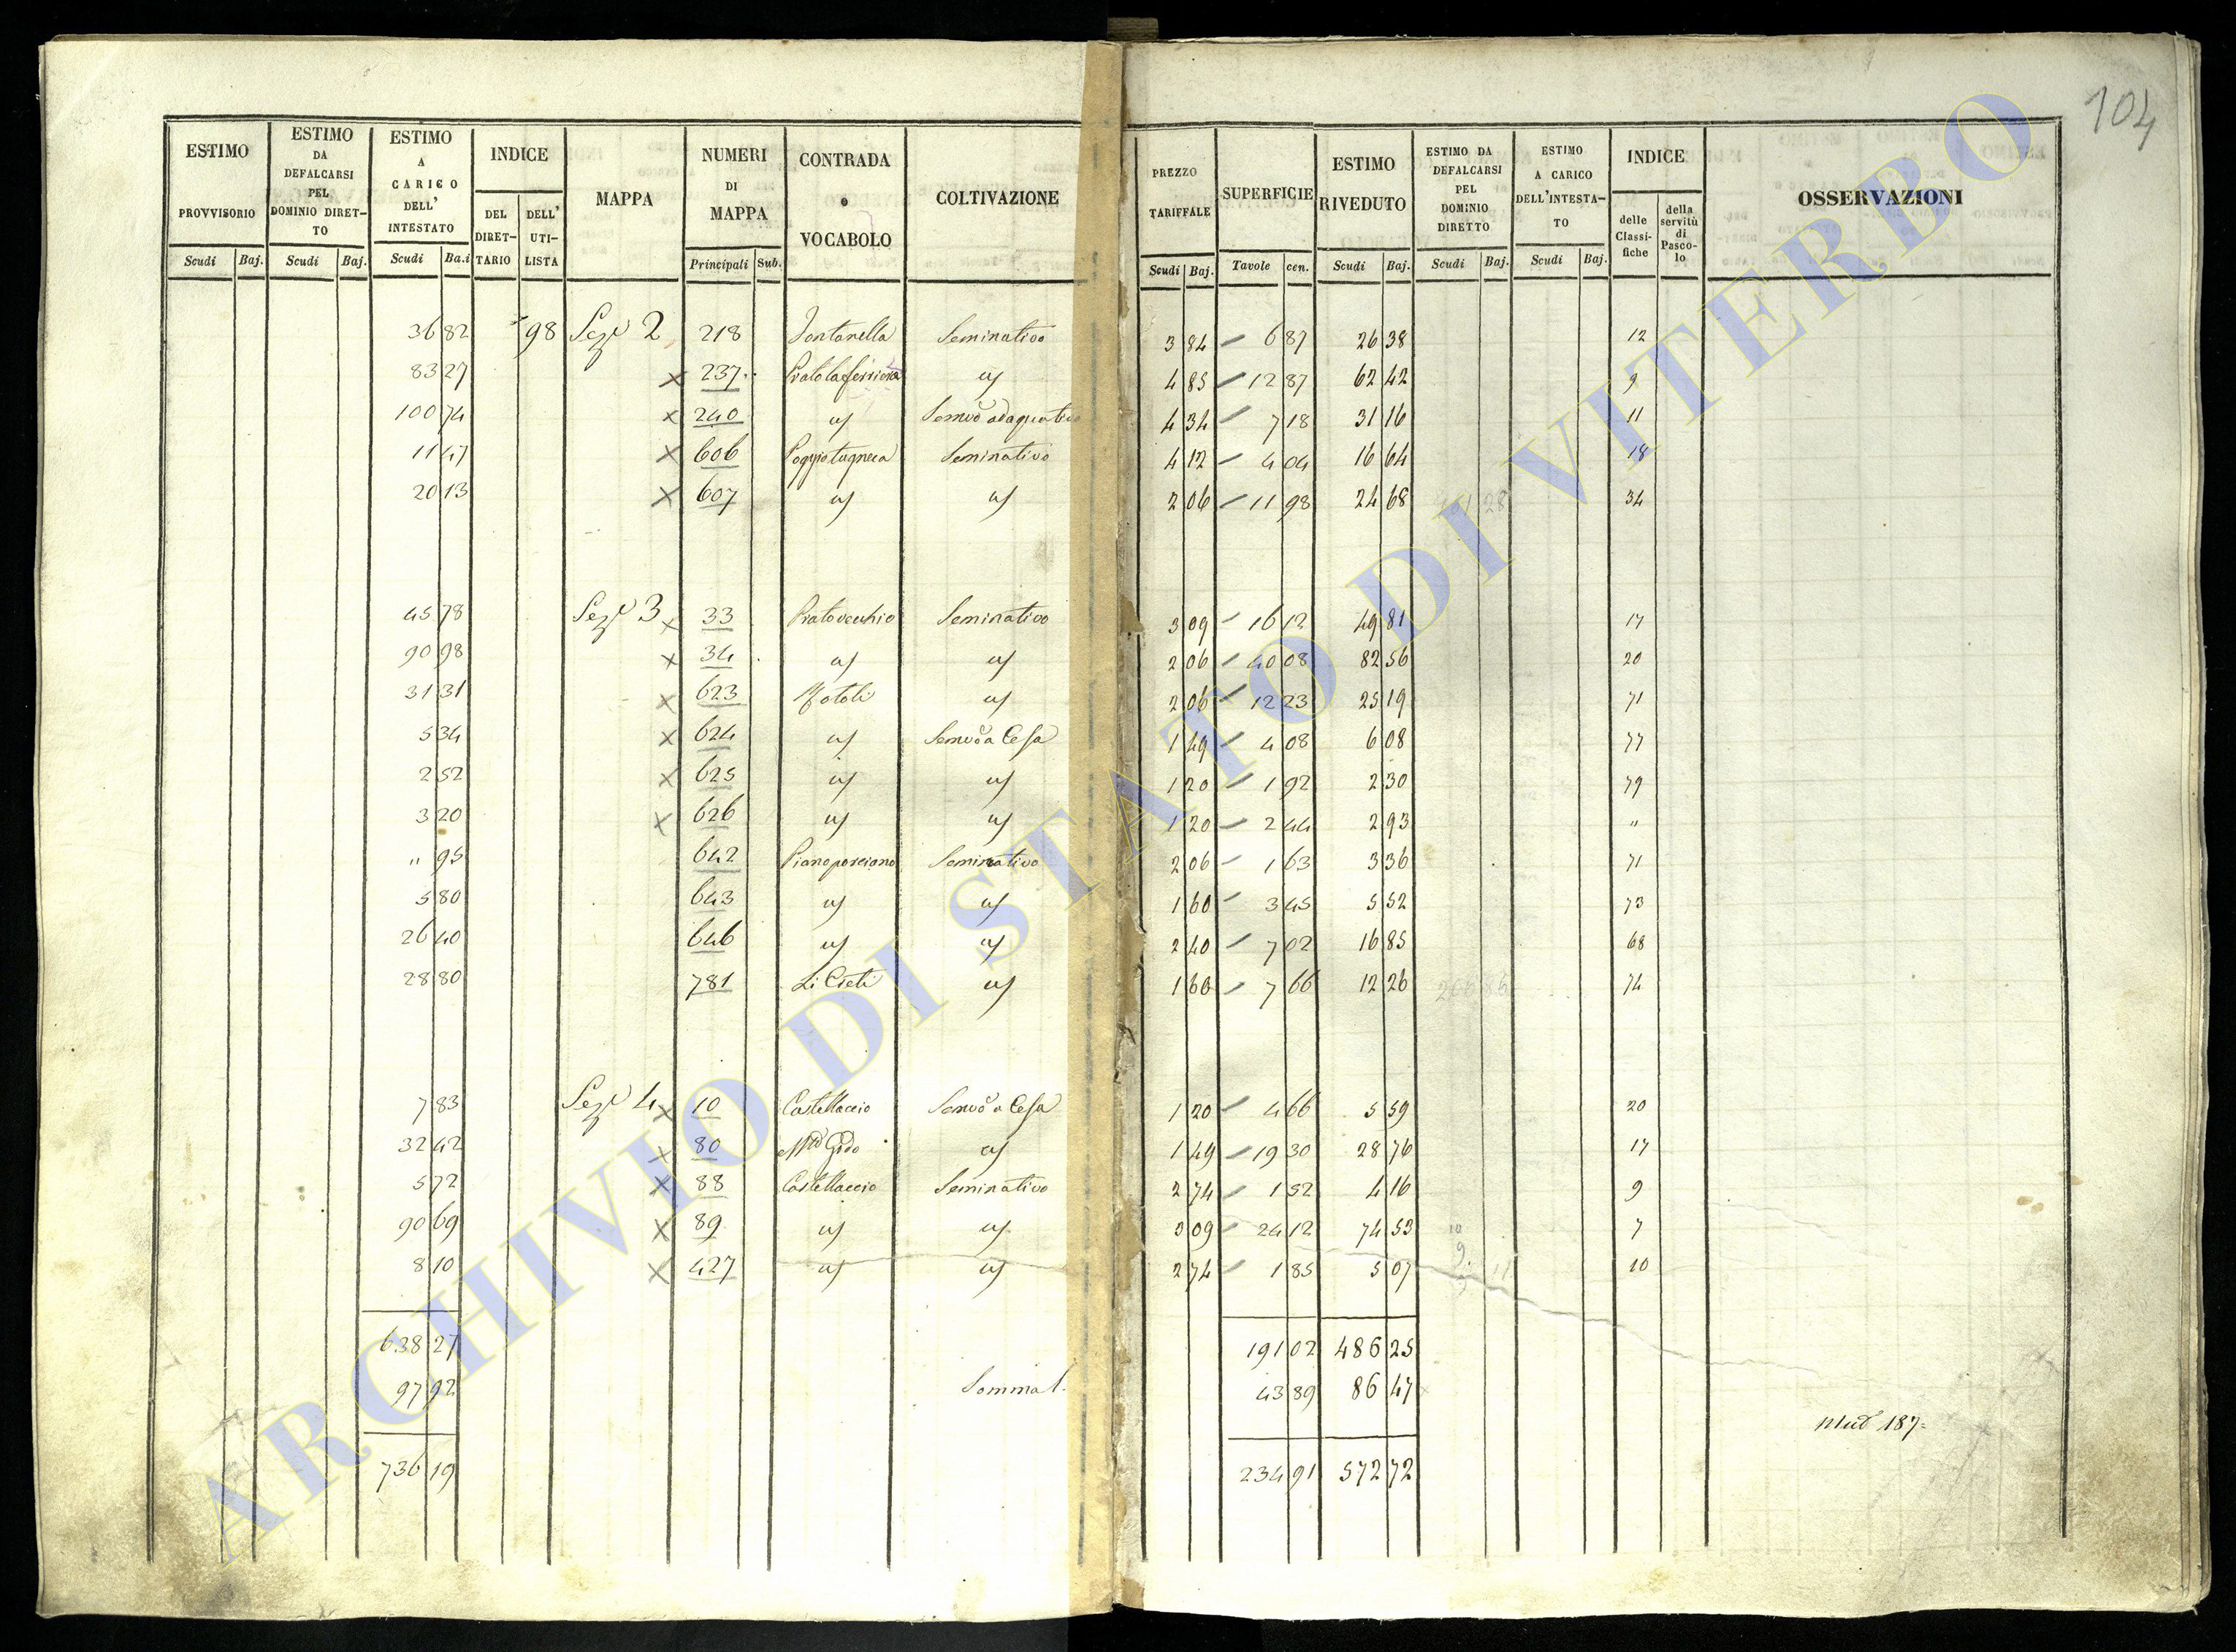 104
ESTIMO PROVVISORIO Scudi Baj.
ESTIMO DA DEFALCARSI PEL DOMINIO DIRET-TO Scudi Baj.
ESTIMO A CARICO DELL' INTESTATO Scudi Ba.i
INDICE DEL DIRET-TARIO DELL' UTI-LISTA
MAPPA
NUMERI DI MAPPA Principali Sub.
CONTRADA o VOCABOLO
COLTIVAZIONE
PREZZO TARIFFALE Scudi Baj.
SUPERFICIE Tavole cen.
ESTIMO RIVEDUTO Scudi Baj.
ESTIMO DA DEFALCARSI PEL DOMINIO DIRETTO Scudi Baj.
ESTIMO A CARICO DELL'INTESTA-TO Scudi Baj.
INDICE delle Classi-fiche della servitù di Pasco-lo
OSSERVAZIONI
36 82 98 Seze 2 218 Fontanella Seminativo 3 84 6 87 26 38 12
83 27 x 237 Prato la ferriera " 4 85 12 87 62 42 9
100 74 x 240 " Semvo adaquativo 4 34 7 18 31 16 11
11 47 x 606 Poggiotugneca Seminativo 4 12 4 04 16 64 18
20 13 x 607 " " 2 06 11 98 24 68 161 28 34
45 78 Seze 3 x 33 Pratovecchio Seminativo 3 09 16 12 49 81 17
90 98 x 34 " " 2 06 40 08 82 56 20
31 31 x 623 " 2 06 12 23 25 19 71
5 34 x 624 " Semvo a Cesa 1 49 4 08 6 08 77
2 52 x 625 " " 1 20 1 92 2 30 79
3 20 x 626 " " 1 20 2 44 2 93 "
" 95 642 Pianoporciano Seminativo 2 06 1 63 3 36 71
5 80 643 " " 1 60 3 45 5 52 73
26 40 646 " " 2 40 7 02 16 85 68
28 80 781 Li Creti " 1 60 7 66 12 26 74
7 83 Seze 4 x 10 Castellaccio Semvo a Cesa 1 20 4 66 5 59 20
32 42 x 80 " 1 49 19 30 28 76 17
5 72 x 88 Castellaccio Seminativo 2 74 1 52 4 16 9
90 69 x 89 " " 3 09 24 12 74 53 7
8 10 x 427 " " 2 74 1 85 5 07 10
638 27 191 02 486 25
97 92 Somma l. 43 89 86 47
187=
736 19 234 91 572 72
ARCHIVIO DI STATO DI VITERBO